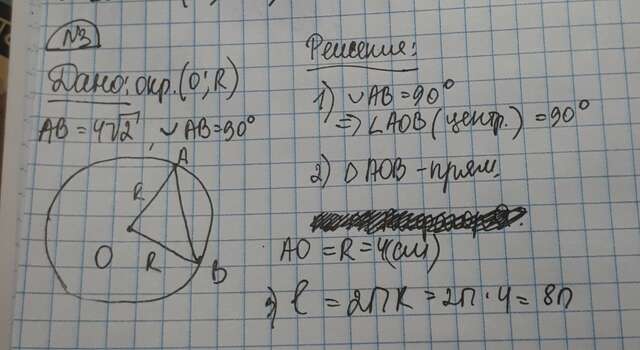 №3
Дано: окр.(O; R)
AB = 4√2, ◡AB = 90°
A
R
O
R
B
Решение:
1) ◡AB = 90°
⇒ ∠AOB (центр.) = 90°
2) △AOB - прям.
AO = R = 4(см)
3) ℓ = 2ПR = 2П · 4 = 8П